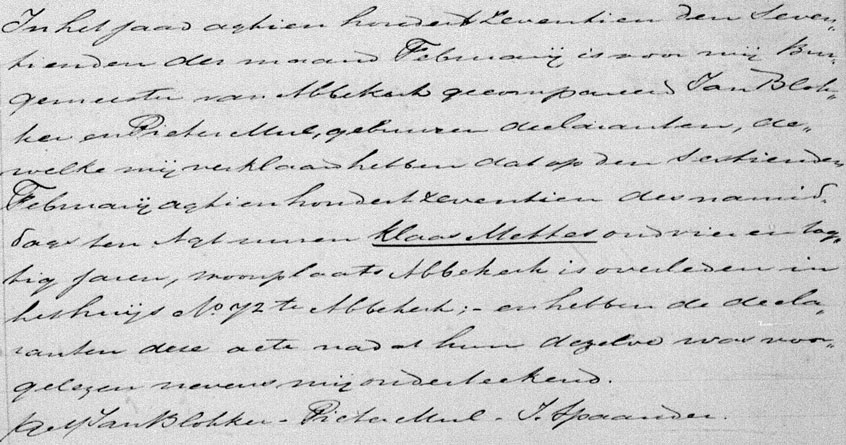 In het jaar agtien hondert zeventien den Seven„
tienden der maand Februarij is voor mij Bur„
gemeester van Abbekerk gecompareerd Jan Blok„
ker en Pieter Mul, gebuuren declaranten, de„
welke mij verklaard hebben dat op den sestienden
Februarij agtien hondert zeventien des namid„
dags ten Agt uuren Klaas Mettes oud vier en tag„
tig jaren, woonplaats Abbekerk is overleden in
het huijs No 72 te Abbekerk; - en hebben de decla„
ranten dese acte nadat hun dezelve was voor„
gelezen nevens mij onderteekend.
Jan Blokker - Pieter Mul - J. Spaander.